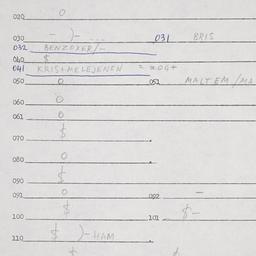 020 0
030 - )- 031 BRIS
032 BENZOXER/-
040 $
041 KRIS+MELEJENEN = 
050 0 051 MALTEM/MA
060 0
061 0
$
070
080 0
090 $
091 0 092 -
$
100 101 $-
110 $ )-HAM